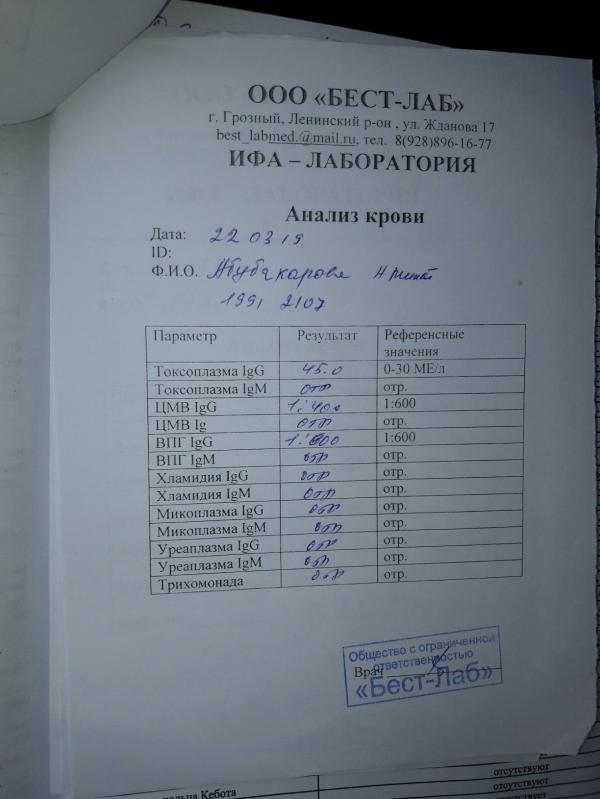 ООО «БЕСТ-ЛАБ»
г. Грозный, Ленинский р-он , ул. Жданова 17
best_labmed.@mail.ru, тел. 8(928)896-16-77
ИФА – ЛАБОРАТОРИЯ
Анализ крови
Дата: 22 03 19.
ID:
Ф.И.О. Абубакарова
1991 2107
Параметр Результат Референсные значения
Токсоплазма IgG 45.0 0-30 МЕ/л
Токсоплазма IgM отр отр.
ЦМВ IgG 1:400 1:600
ЦМВ Ig отр отр.
ВПГ IgG 1:600
ВПГ IgM отр отр.
Хламидия IgG отр отр.
Хламидия IgM отр отр.
Микоплазма IgG отр отр.
Микоплазма IgM отр отр.
Уреаплазма IgG отр отр.
Уреаплазма IgM отр отр.
Трихомонада отр отр.
Общество с ограниченной
ответственностью
Врач
«Бест-Лаб»
отсутствуют
отсутствует
Кебота